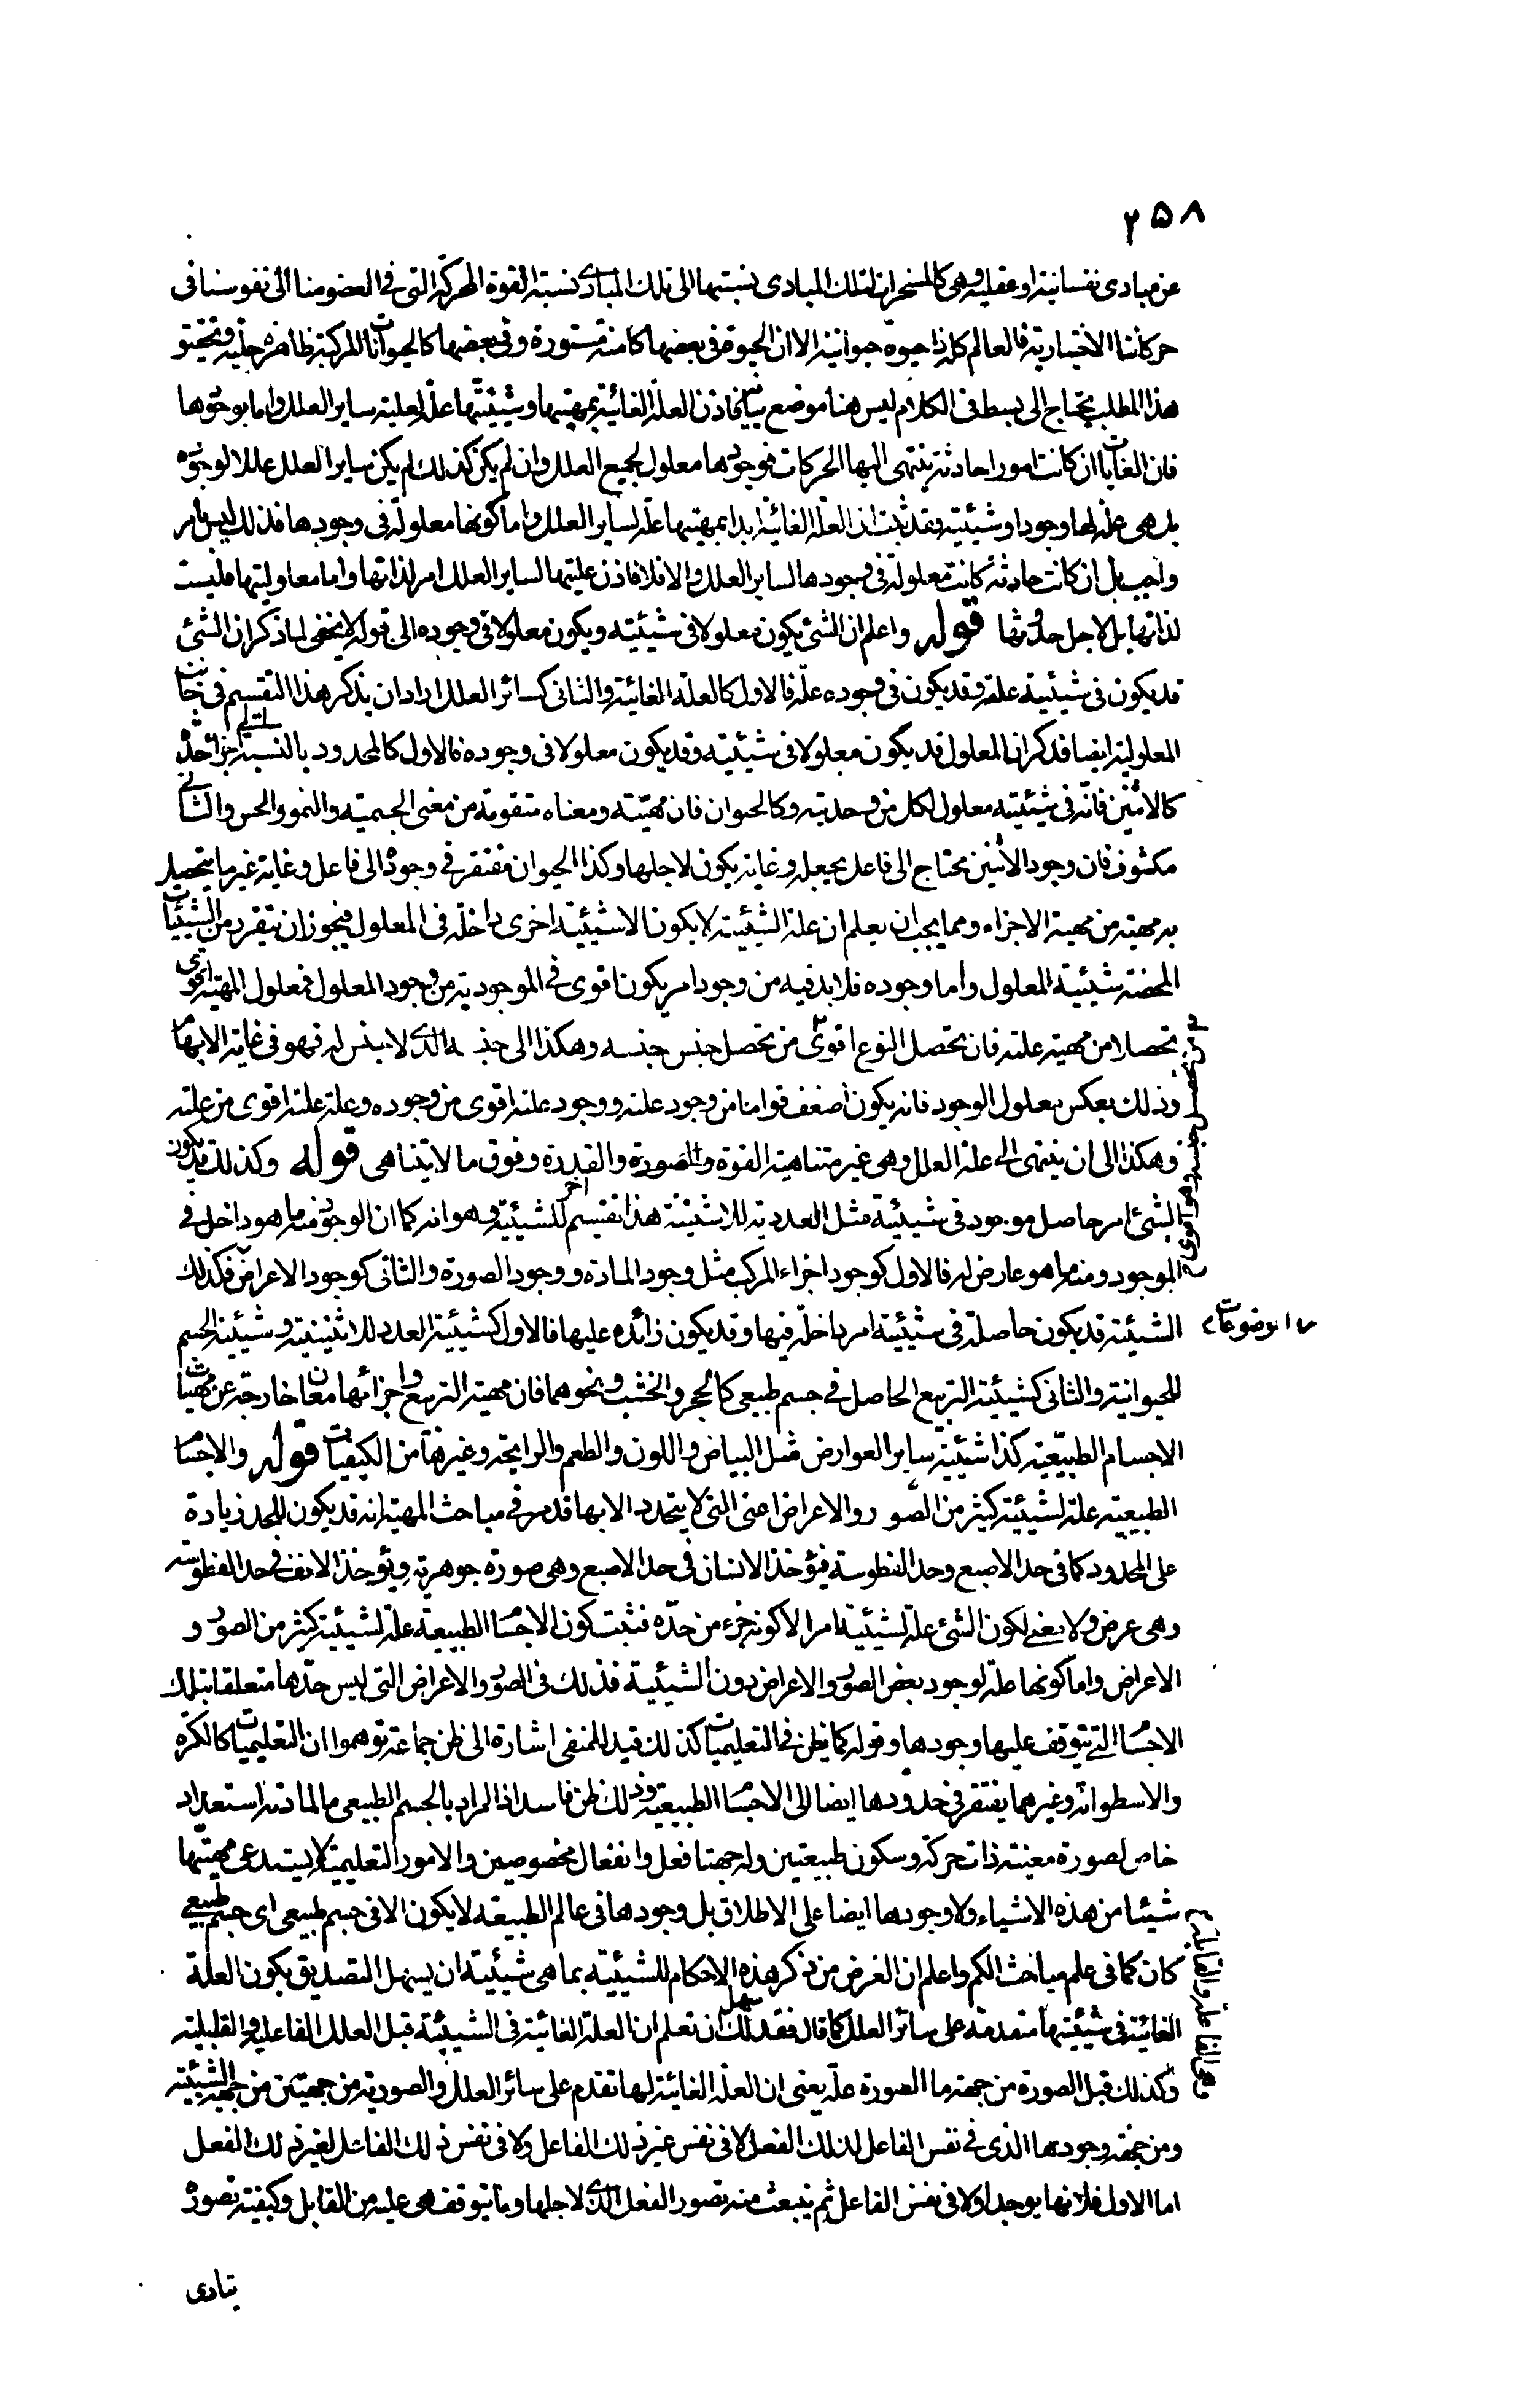 ٢٥٨
عن مبادى نفسانية او عقلية وهى كالمسخرات لتلك المبادى نسبتها الى تلك المبادى نسبة القوة المحركة التى فى العضو منا الى نفوسنا فى
حركاتنا الاختيارية فالعالم كله ذا حيوة حيوانية الا ان الحيوة فى بعضها كامنة مستورة وفى بعضها كالحيوانات المركبة ظاهرة جلية وتحقيق
هذا المطلب يحتاج الى بسط فى الكلام ليس هنا موضع بيانه فاذن العلة الغائية بمهيتها وشيئيتها علة لعلية ساير العلل واما بوجودها
فان الغايات ان كانت امورا حادثة ينتهى اليها الحركات فوجودها معلول لجميع العلل وان لم يكن كذلك لم يكن ساير العلل عللا لوجوده
بل هى علة لها وجودا وشيئية فقد ثبت ان العلة الغائية ابدا بمهيتها علة لساير العلل واما كونها معلولة فى وجودها فذلك ليس بامر
واجب بل ان كانت حادثة كانت معلولة فى وجودها لساير العلل والا فلا فاذن عليتها لساير العلل امر لذاتها واما معلوليتها فليست
لذاتها بل لاجل حدوثها قوله واعلم ان الشئ يكون معلولا فى شيئيته ويكون معلولا فى وجوده الى قوله لا يخفى لما ذكر ان الشئ
قد يكون فى شيئيته علة وقد يكون فى وجوده علة فالاول كالعلة الغائية والثانى كسائر العلل اراد ان يذكر هذا التقسيم فى جانب
المعلولية ايضا فذكر ان المعلول قد يكون معلولا فى شيئيته وقد يكون معلولا فى وجوده فالاول كالمحدود بالنسبة الى اجزاء حده
كالاثنين فانه فى شيئيته معلول لكل من وحدتيه وكالحيوان فان مهيته ومعناه متقومة من معنى الجسمية والنمو والحس والثانى
مكشوف فان وجود الاثنين محتاج الى فاعل يجعله وغاية يكون لاجلها وكذا الحيوان مفتقر فى وجوده الى فاعل وغاية غير ما يتحصل
به مهيته من مهية الاجزاء ومما يجب ان يعلم ان علة الشيئية لا يكون الا شيئية اخرى داخلة فى المعلول فيجوز ان يتقرر من الشيئيات
المحضة شيئية المعلول واما وجوده فلا بد فيه من وجود امر يكون اقوى فى الموجودية من وجود المعلول فمعلول المهية اقوى
تحصلا من مهية علته فان تحصل النوع اقوى من تحصل جنس جنسه وهكذا الى جنسه الذى لا جنس له فهو فى غاية الابهام
من تحصل جنسه وهو اقوى
وذلك بعكس معلول الوجود فانه يكون اضعف قواما من وجود علته ووجود علته اقوى من وجوده وعلة علته اقوى من علته
وهكذا الى ان ينتهى الى علة العلل وهى غير متناهية القوة والصورة والقدرة وفوق ما لا يتناهى قوله وكذلك قد يكون
الشئ امر حاصل موجود فى شيئيته مثل العددية للاثنينية هذا تقسيم اخر للشيئية وهو انه كما ان الوجود منه ما هو داخل فى
الموجود ومنه ما هو عارض له فالاول كوجود اجزاء المركب مثل وجود المادة ووجود الصورة والثانى كوجود الاعراض فكذلك
الشيئية قد يكون حاصلة فى شيئية امر داخلة فيها وقد يكون زائدة عليها فالاول كشيئية العدد للاثنينية وشيئية الجسم
للحيوانية والثانى كشيئية التربيع الحاصل فى جسم طبيعى كالحجر والخشب ونحوهما فان مهية التربيع واجزائها معان خارجة عن مهيات
الاجسام الطبيعية كذا شيئية ساير العوارض مثل البياض واللون والطعم والرايحة وغيرها من الكيفيات قوله والاجسام
الطبيعية علة لشيئية كثير من الصور والاعراض اعنى التى لا يتحدد الا بها قد مر فى مباحث المهية انه قد يكون للحد زيادة
على المحدود كما فى حد الاصبع وحد الفطوسة فيؤخذ الانسان فى حد الاصبع وهى صورة جوهرية ويؤخذ الانف فى حد الفطوسة
وهى عرض ولا معنى لكون الشئ علة لشيئية امر الا كونه جزء من حده فثبت كون الاجسام الطبيعة علة لشيئية كثير من الصور و
الاعراض واما كونها علة لوجود بعض الصور والاعراض دون الشيئية فذلك فى الصور والاعراض التى ليس حدها متعلقا بتلك
الاجسام التى يتوقف عليها وجودها وقوله كما يظن فى التعليميات كذلك قيد للمنفى اشارة الى ظن جماعة توهموا ان التعليميات كالكرة
والاسطوانه وغيرهما يفتقر فى حدودها ايضا الى الاجسام الطبيعية وذلك ظن فاسد اذ المراد بالجسم الطبيعى ما لمادته استعداد
خاص لصورة معينة ذات حركة وسكون طبيعتين وله جهتا فعل وانفعال مخصوصين والامور التعليمية لا يستدعى مهيتها
شيئا من هذه الاشياء ولا وجودها ايضا على الاطلاق بل وجودها فى عالم الطبيعة لا يكون الا فى جسم طبيعى اى جسم طبيعى
كان كما فى علم مباحث الكم واعلم ان الغرض من ذكر هذه الاحكام للشيئية بما هى شيئية ان يسهل التصديق بكون العلة
الغائية فى شيئيتها متقدمة على سائر العلل كما قال فقد سهل لك ان تعلم ان العلة الغائية فى الشيئية قبل العلل الفاعلية والقابلية
وكذلك قبل الصورة من جهة ما الصورة علة يعنى ان العلة الغائية لها تقدم على سائر العلل والصورية من جهتين من جهة الشيئية
ومن جهة وجودها الذى فى نفس الفاعل لذلك الفعل لا فى نفس غير ذلك الفاعل ولا فى نفس ذلك الفاعل لغير ذلك الفعل
اما الاول فلانها يوجد اولا فى نفس الفاعل ثم ينبعث منه تصور الفعل الذى لاجلها وما يتوقف هى عليه من القابل وكيفية تصوره
تبادى